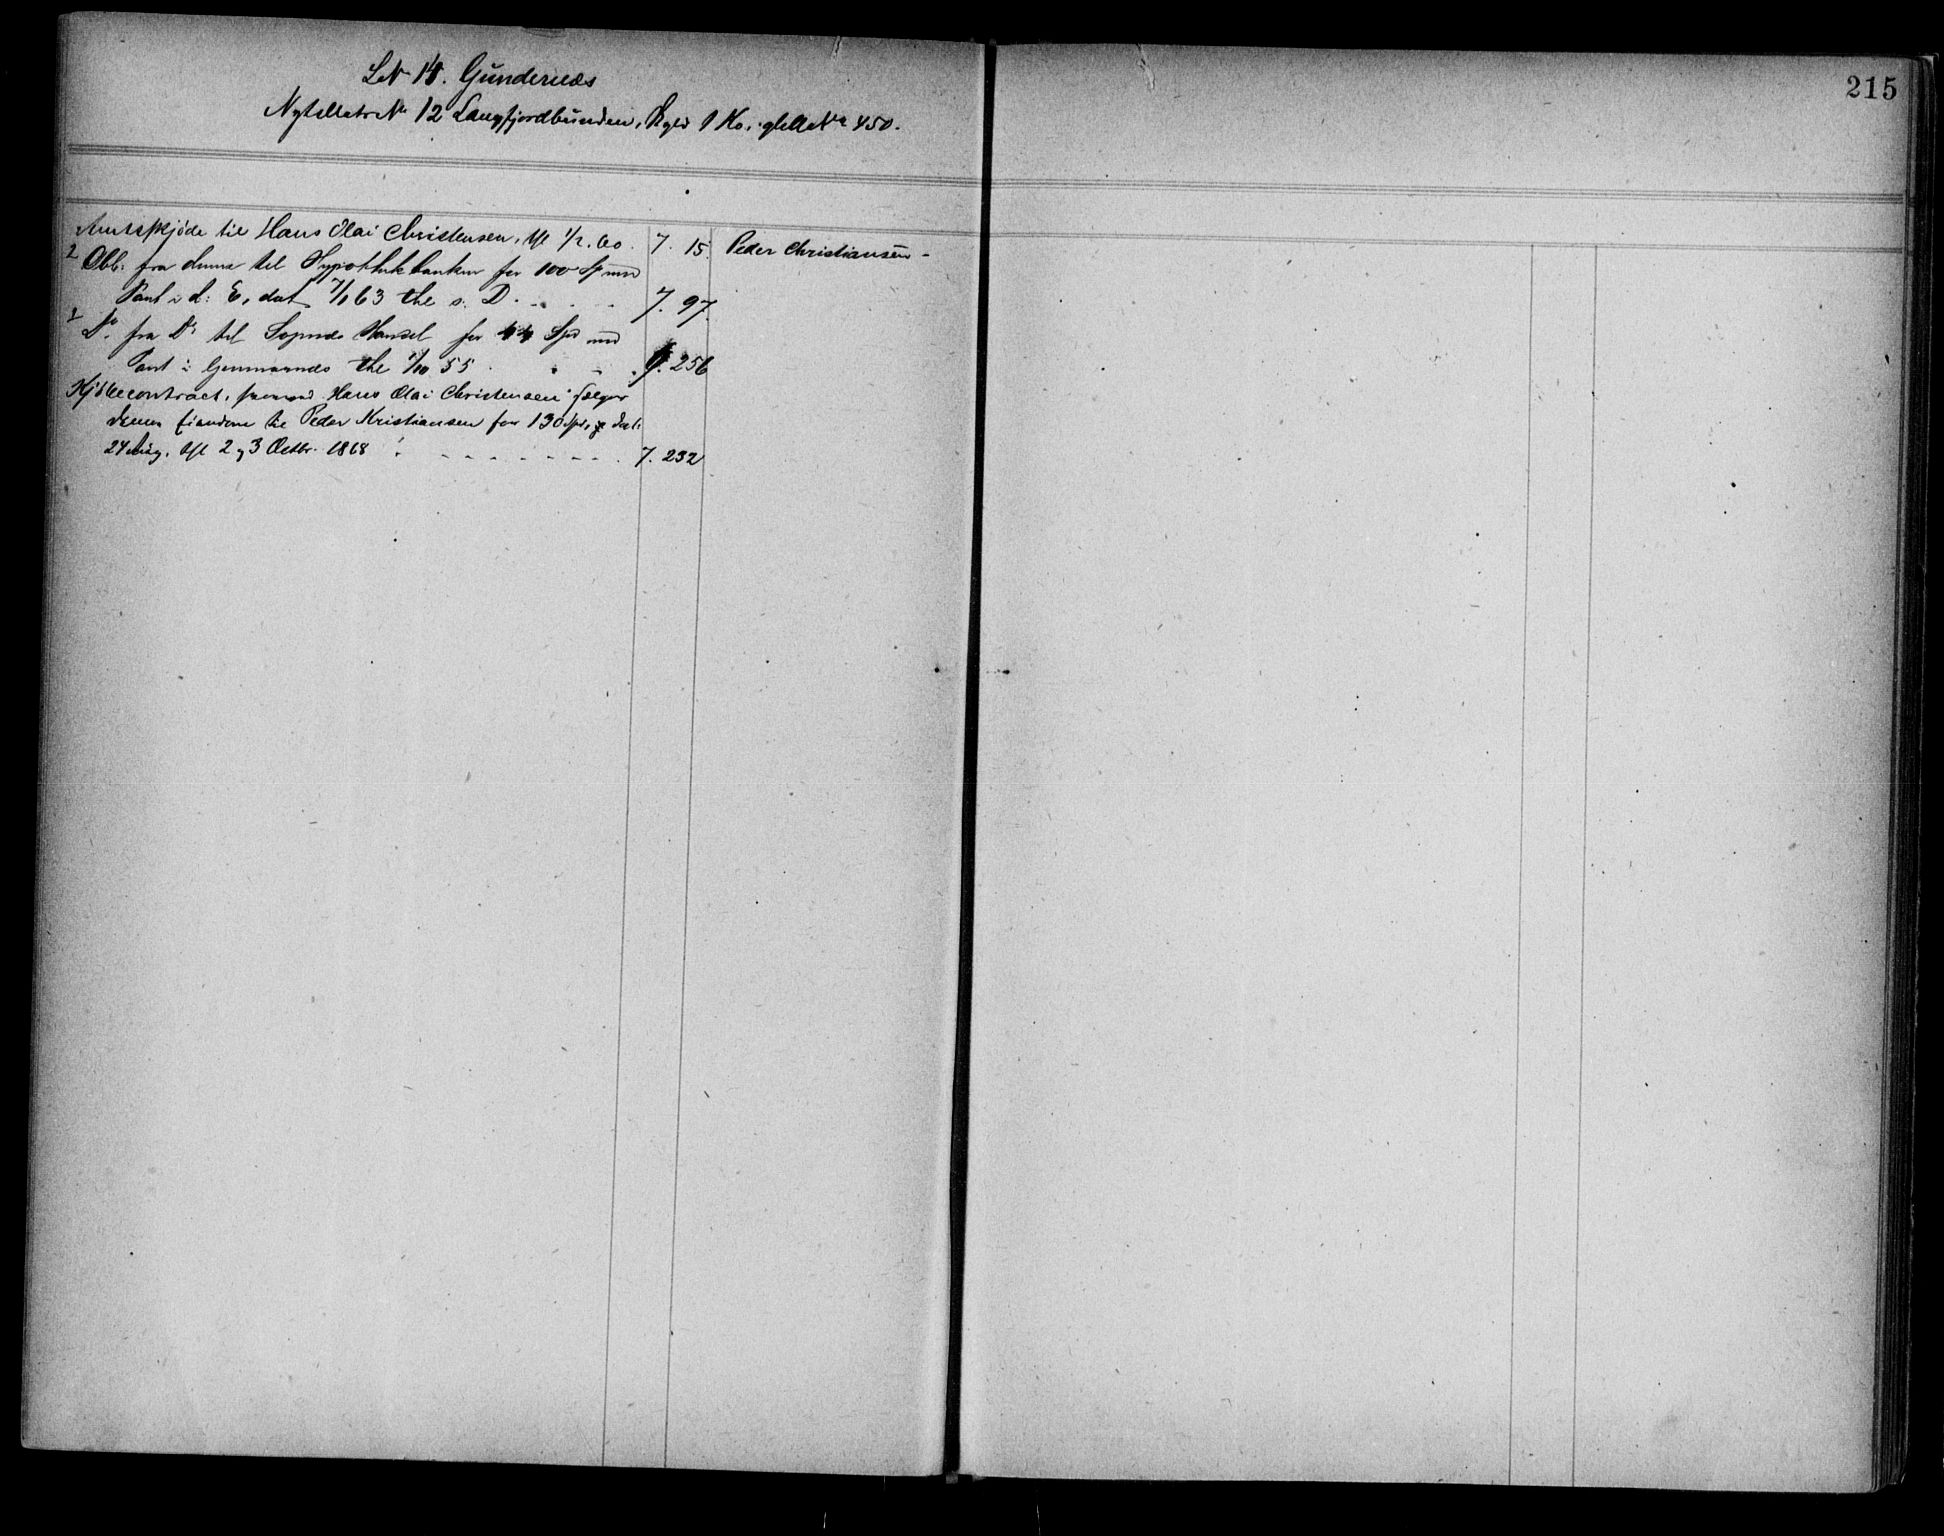 215
LN 14. Gundernæs
Nyt Matr No 12 Langfjordbunden, Skyld 1 Ko, glM No 450.
Amtsskjøde til Hans Olai Christensen, thl 1/2. 60. 7. 15. Peder Christiansen -
2 Obl: fra denne til Hypothekbanken for 100 Sp mod
Pant i d: E, dat 7/1 63 thl s. D. 7. 97.
1 Do. fra Do til Hansel for 44 Spd mod
Pant i thl 1/10 55 256
Kjøbecontract, hvorved Hans Olai Christensen sælger
denne Eiendom til Peder Kristiansen for 130 Spd, dat:
24 Aug, thl 2 og 3 Octbr. 1868 7. 232